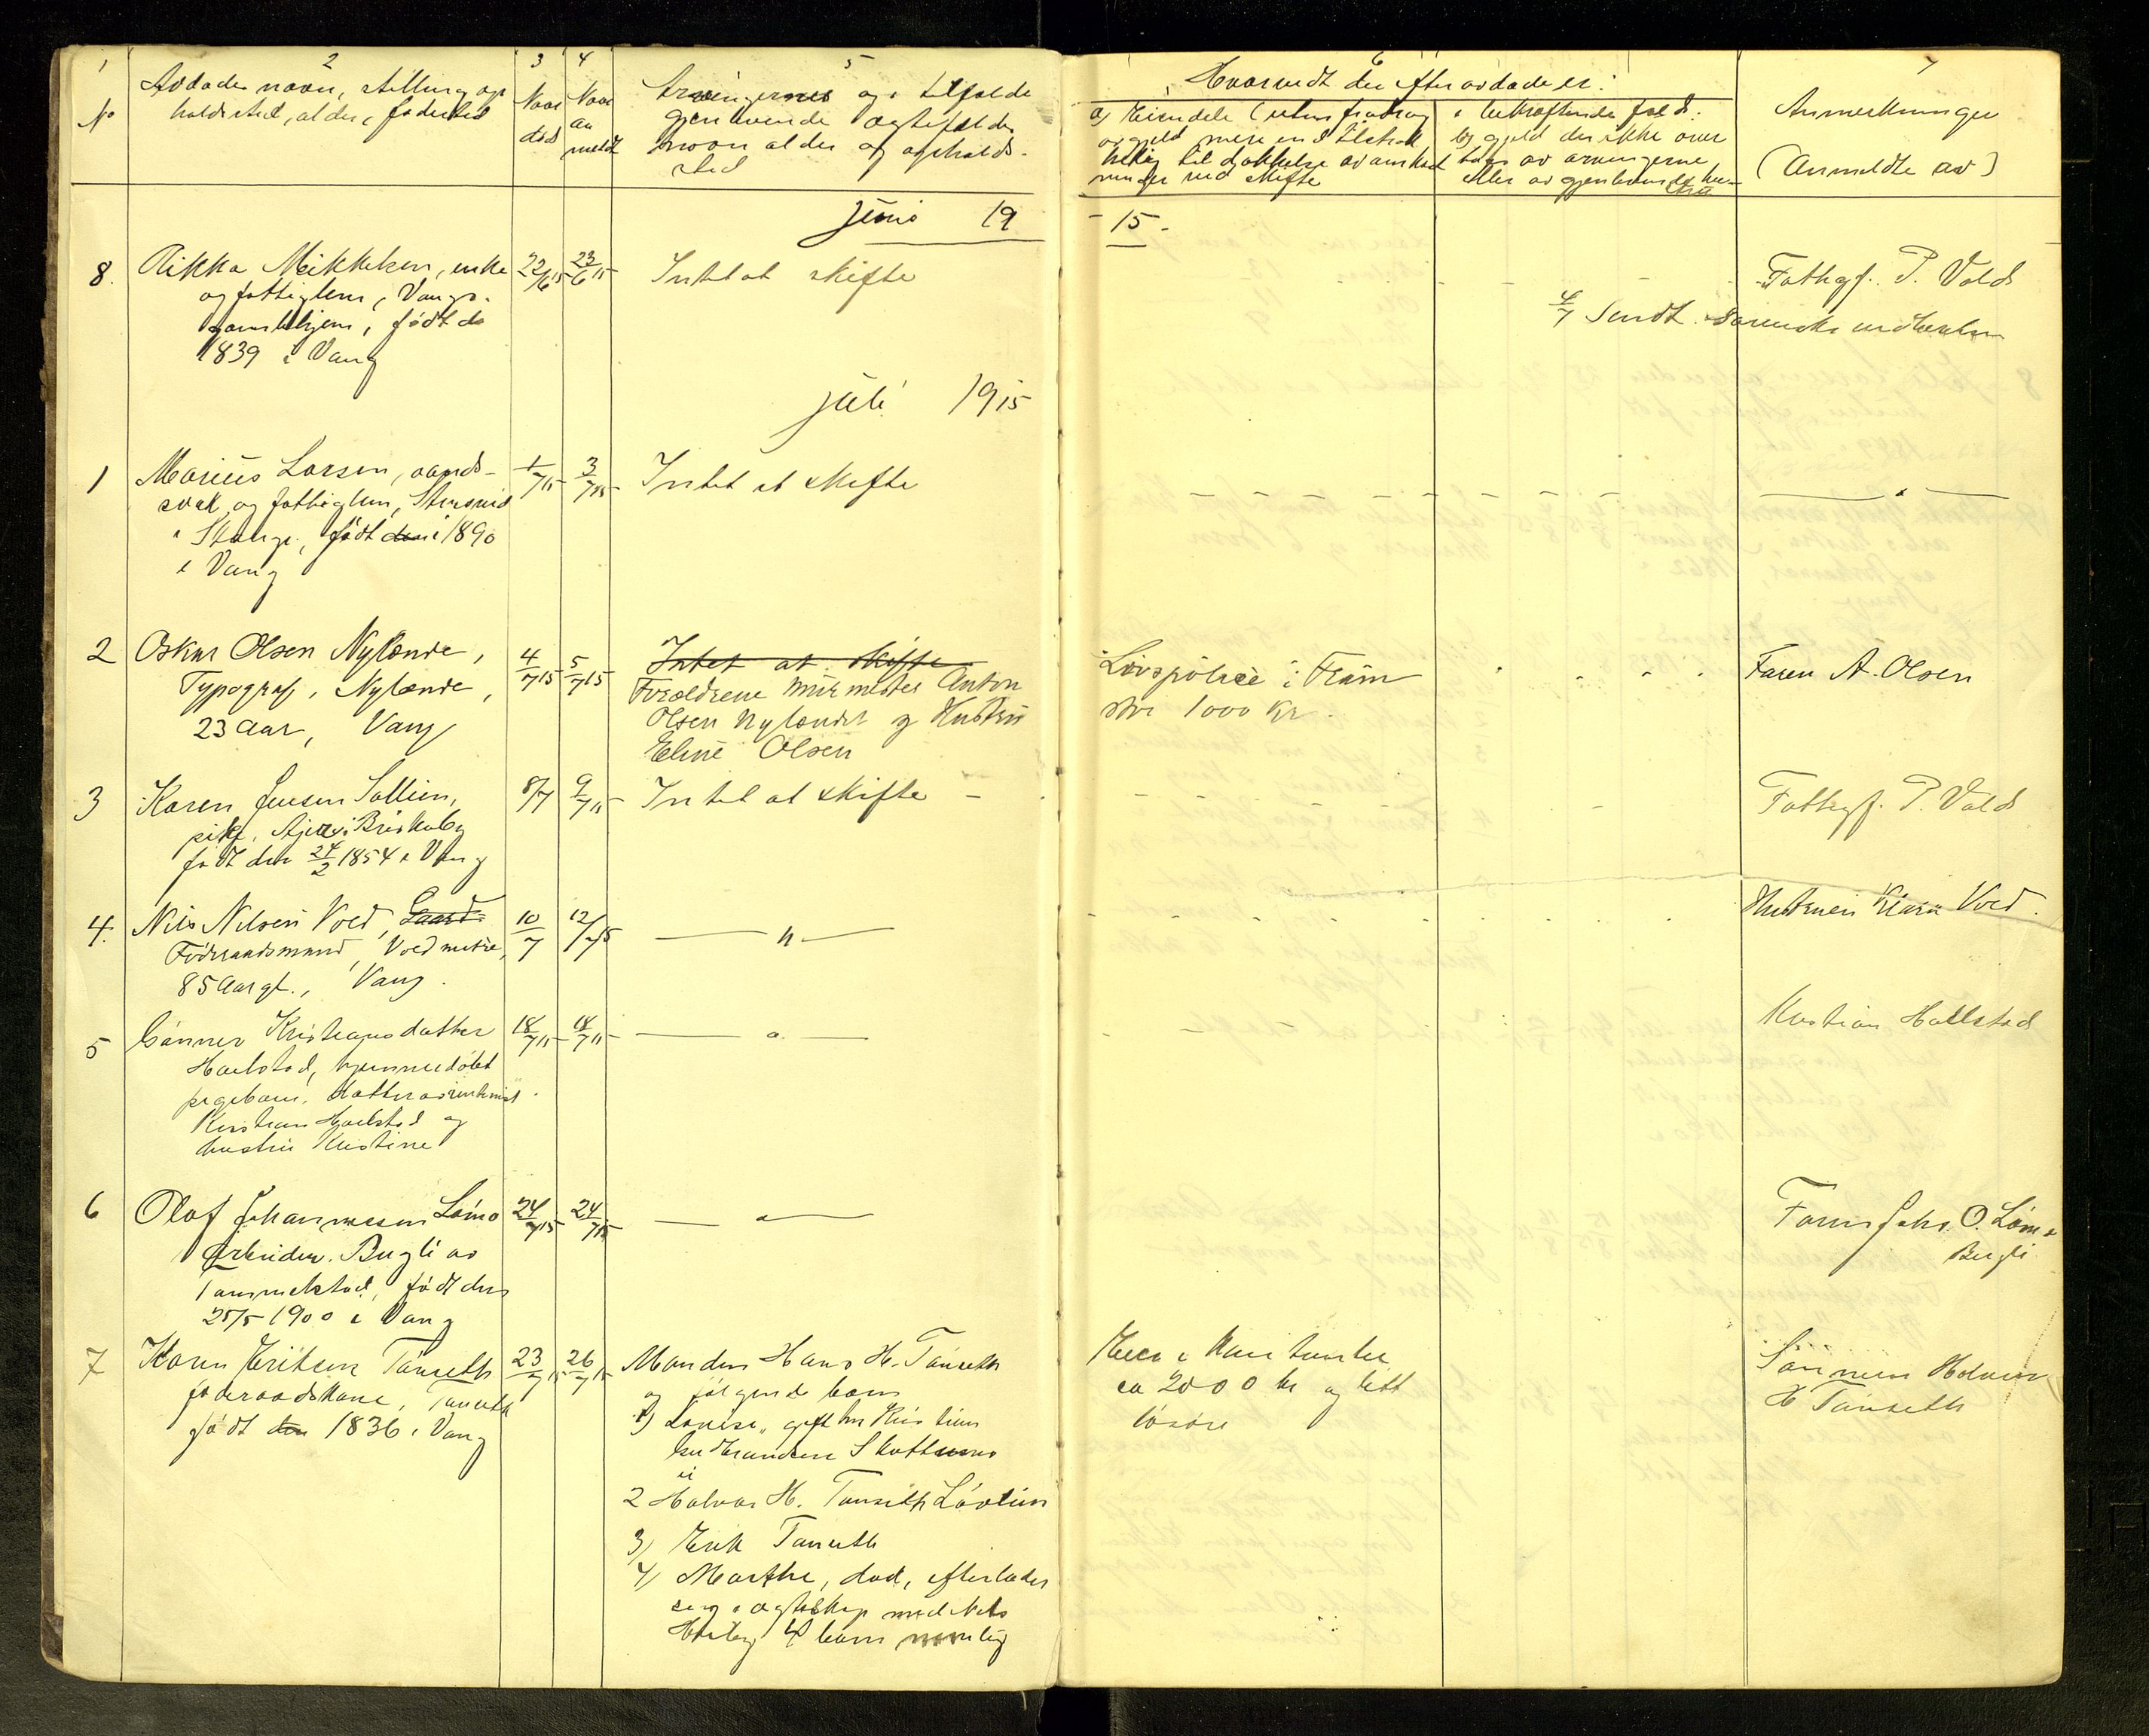 1 2 3 4 5 6 7
No
Avdødes navn, stilling, op
holdssted, alder, fødested
Naar
død
Naar
an
meldt
Arvingernes og i tilfælde
gjenlevende ægtefælles
navn alder og opholds-
sted
Hvorvidt der efter avdøde er:
a) Eiendele (uten fradrag
av gjæld mere end tilstræk
kelig til dækkelse av omkost
ninger ved skifte
i bekræftende fald:
b) gjæld der ikke over
tages av arvingerne
eller av gjenlevende
Anmerkninger
(Anmeldte av)
Juni 19 - 15 -
8. Rikka Mikkelsen, enke
og fattiglem, Vangs
gamlehjem, født
1839 i Vang
22/6 15 23/6 15
Intet at skifte
Fattigf. P. Vold
4/7 Sendt
Juli 1915
1 Marius Larsen, aands-
svak og fattiglem,
i Stange, født den i 1890
i Vang
1/7 15 3/7 15
Intet at skifte
2 Oskar Olsen Nylænde,
Typograf, Nylænde,
23 aar, Vang
4/7 15 5/7 15
Intet at skifte
Forældrene murmester Anton
Olsen Nylændet og Hustru
Eline Olsen
Livspolice i Fram
stor 1000 Kr.
Faren A. Olsen
3 Karen Jensen Sollien,
pike, Briskeby
født den 24/2 1854 i Vang
8/7 9/7 15
Intet at skifte -
Fattigf. P. Vold
4. Nils Nilsen Vold, Gaard-
Føderaadsmand, Vold nedre,
85 Aar gl., Vang.
10/7 12/7 15
— " —
Hustruen Klara Vold.
5 Gunner Kristiansdatter
Hjelstad, hjemmedøbt
pigebarn, datter av
Kristian Hjelstad og
hustru Kristine
18/7 15 18/7 15
— " —
Kristian Hjellstad
6 Olaf Johannessen Lømo
Arbeider. Bugli av
Tommelstad, født den
25/5 1900 i Vang
24/7 15 24/7 15
— " —
Faren Johs. O. Lømo
Bugli
7 Karen Eriksen Tanseth
føderaadskone, Tanseth
født den 1836 i Vang
23/7 15 26/7 15
Manden Hans H. Tanseth
og følgende barn
1) Louise, gift m Kristian
Gudbrandsen
2 Halvor H. Tanseth Løvlien
3) Erik Tanseth
4) Marthe, død, efterlader
sig i ægteskap med Nils
4 barn nemlig
ca 2000 kr og litt
løsøre
Sønnen Halvor
H Tanseth